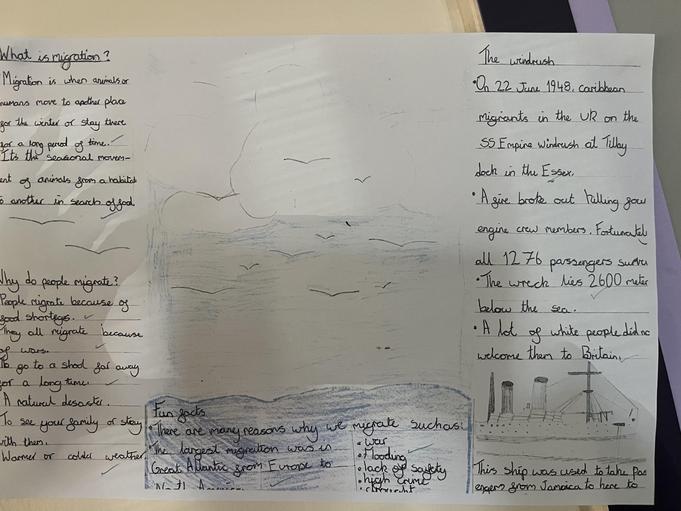 What is migration?
Migration is when animals or
humans move to another place
for the winter or stay there
for a long period of time.
It's the seasonal movem-
ent of animals from a habitat
to another in search of food
Why do people migrate?
People migrate because of
food shortegs.
They all migrate because
of wars.
To go to a shool far away
for a long time.
A natural desaster.
To see your family or stay
with them.
Warmer or colder weather.
Fun facts
• There are many reasons why we migrate such as:
• The largest migration was in
Great Atlantic from Europe to
North America
• war
• flooding
• lack of safety
• high crime
• drought
The windrush
• On 22 June 1948, caribbean
migrants in the UK on the
SS Empire windrush at Tilby
dock in the Essex.
• A fire broke out killing four
engine crew members. Fortunatel
all 1276 passengers surviv
• The wreck lies 2600 meter
below the sea.
• A lot of white people did no
welcome them to Britain.
This ship was used to take pas
engers from Jamaica to here to